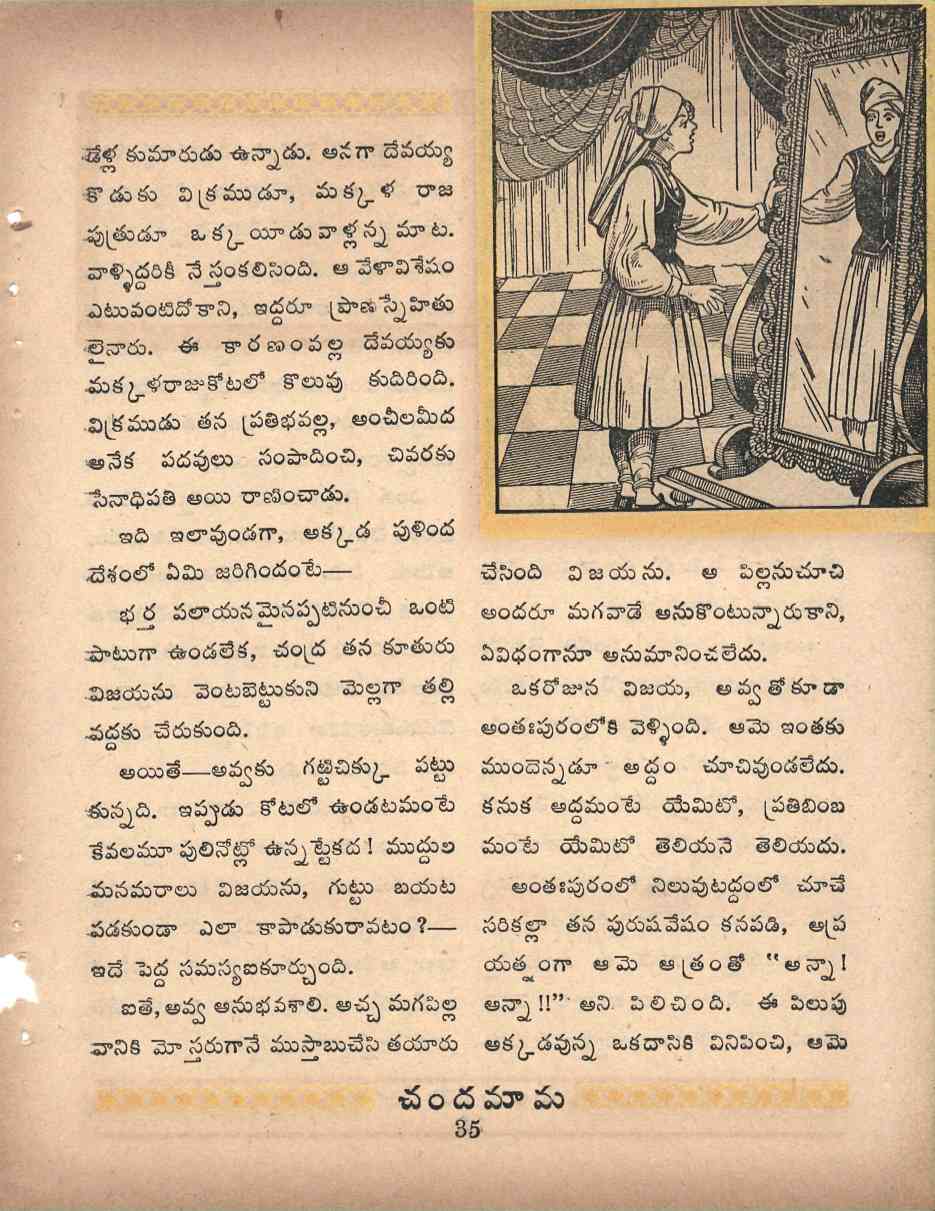 డేళ్ల కుమారుడు ఉన్నాడు. అనగా దేవయ్య
కొడుకు విక్రముడూ, మక్కళ రాజ
పుత్రుడూ ఒక్కయీడువాళ్లన్నమాట.
వాళ్ళిద్దరికీ నేస్తంకలిసింది. ఆ వేళావిశేషం
ఎటువంటిదోకాని, ఇద్దరూ ప్రాణస్నేహితు
లైనారు. ఈ కారణంవల్ల దేవయ్యకు
మక్కళరాజుకోటలో కొలువు కుదిరింది.
విక్రముడు తన ప్రతిభవల్ల, అంచీలమీద
అనేక పదవులు సంపాదించి, చివరకు
సేనాధిపతి అయి రాణించాడు.
ఇది ఇలావుండగా, అక్కడ పుళింద
దేశంలో ఏమి జరిగిందంటే—
భర్త పలాయనమైనప్పటినుంచీ ఒంటి
పాటుగా ఉండలేక, చంద్ర తన కూతురు
విజయను వెంటబెట్టుకుని మెల్లగా తల్లి
వద్దకు చేరుకుంది.
అయితే—అవ్వకు గట్టిచిక్కు పట్టు
కున్నది. ఇప్పుడు కోటలో ఉండటమంటే
కేవలమూ పులినోట్లో ఉన్నట్టేకద! ముద్దుల
మనమరాలు విజయను, గుట్టు బయట
పడకుండా ఎలా కాపాడుకురావటం?—
ఇదే పెద్ద సమస్యఐకూర్చుంది.
ఐతే, అవ్వ అనుభవశాలి. అచ్చ మగపిల్ల
వానికి మోస్తరుగానే ముస్తాబుచేసి తయారు
చేసింది విజయను. ఆ పిల్లనుచూచి
అందరూ మగవాడే అనుకొంటున్నారుకాని,
ఏవిధంగానూ అనుమానించలేదు.
ఒకరోజున విజయ, అవ్వతోకూడా
అంతఃపురంలోకి వెళ్ళింది. ఆమె ఇంతకు
ముందెన్నడూ అద్దం చూచివుండలేదు.
కనుక అద్దమంటే యేమిటో, ప్రతిబింబ
మంటే యేమిటో తెలియనె తెలియదు.
అంతఃపురంలో నిలువుటద్దంలో చూచే
సరికల్లా తన పురుషవేషం కనపడి, అప్ర
యత్నంగా ఆమె ఆత్రంతో "అన్నా!
అన్నా!!" అని పిలిచింది. ఈ పిలుపు
అక్కడవున్న ఒకదాసికి వినిపించి, ఆమె
చందమామ
35